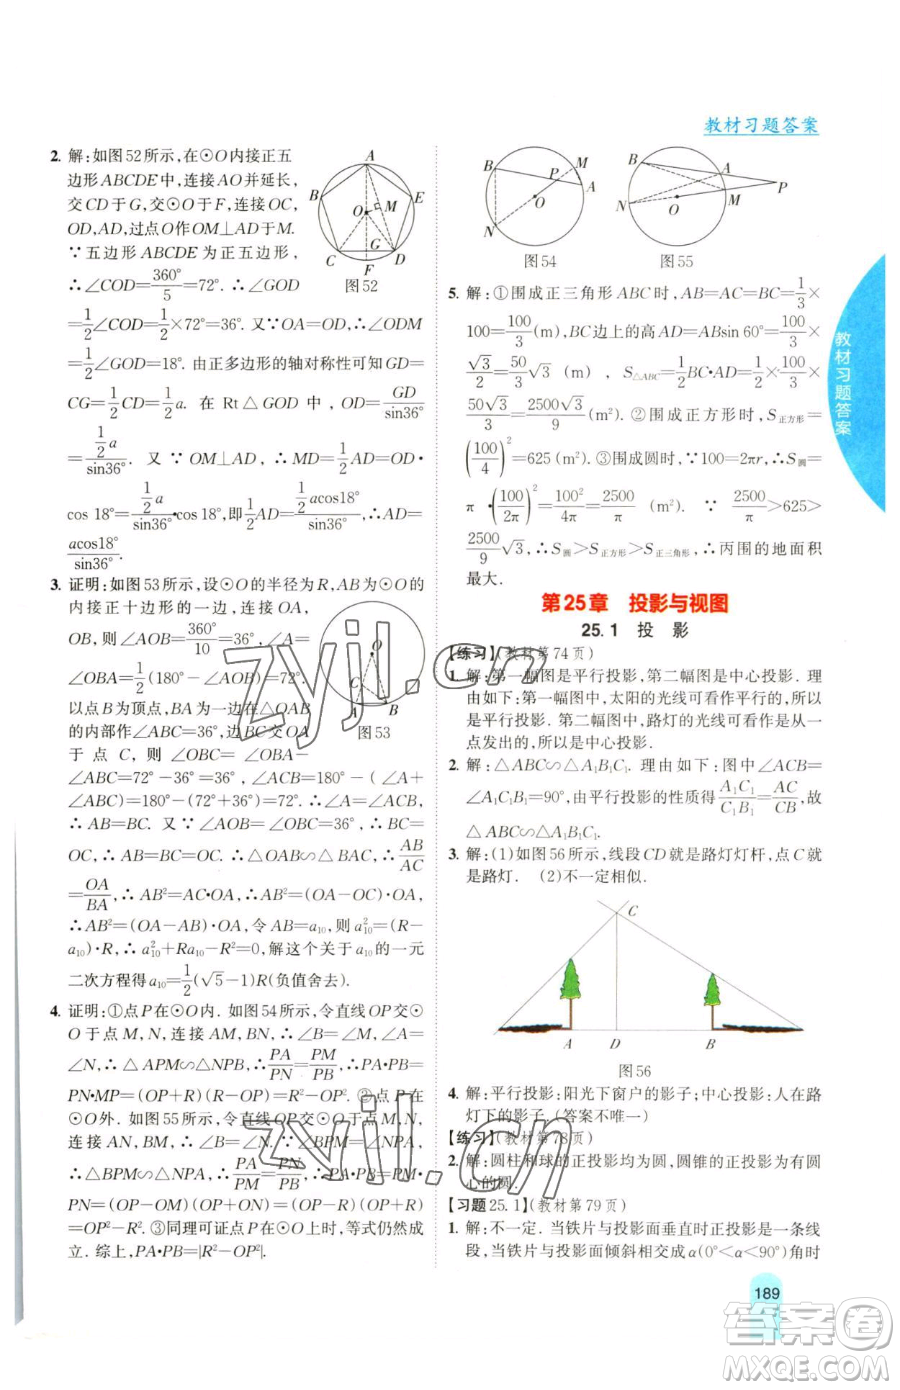 教材习题答案
2. 解:如图52所示,在⊙O内接正五
边形ABCDE中,连接AO并延长,
交CD于G,交⊙O于F,连接OC,
OD,AD,过点O作OM⊥AD于M.
∵五边形ABCDE为正五边形,
∴∠COD=360°/5=72°. ∴∠GOD
=1/2∠COD=1/2×72°=36°. 又∵OA=OD,∴∠ODM
=1/2∠GOD=18°. 由正多边形的轴对称性可知GD=
CG=1/2CD=1/2a. 在Rt△GOD中,OD=GD/sin36°
=(1/2a)/sin36°. 又∵OM⊥AD,∴MD=1/2AD=OD·
cos 18°=(1/2a)/sin36°·cos 18°,即1/2AD=(1/2acos18°)/sin36°. ∴AD=
acos18°/sin36°.
A
B
E
O
M
G
C
F
D
图52
3. 证明:如图53所示,设⊙O的半径为R,AB为⊙O的
内接正十边形的一边,连接OA,
OB,则∠AOB=360°/10=36°,∠A
=∠OBA=1/2(180°-36°)=72°,
以点B为顶点,BA为一边在△OAB
的内部作∠ABC=36°,边BC交OA
于点C,则∠OBC=∠OBA-
∠ABC=72°-36°=36°,∠ACB=180°-(∠A+
∠ABC)=180°-(72°+36°)=72°. ∴∠A=∠ACB,
∴AB=BC. 又∵∠OBC=∠AOB=36°,∴BC=
OC,∴AB=BC=OC. ∵△OAB∽△BAC,∴AB/AC=
OA/BA. ∴AB²=AC·OA,∴AB²=(OA-OC)·OA,
∴AB²=(OA-AB)·OA,令AB=a₁₀,则a₁₀²=(R-
a₁₀)·R,∴a₁₀²+Ra₁₀-R²=0,解这个关于a₁₀的一元
二次方程得a₁₀=1/2(√5-1)R(负值舍去).
O
C
A
B
图53
4. 证明:①点P在⊙O内. 如图54所示,令直线OP交⊙
O于点M,N,连接AM,BN,∴∠B=∠M,∠A=
∠N,∴△APM∽△NPB,∴PA/PN=PM/PB,∴PA·PB=
PN·MP=(OP+R)(R-OP)=R²-OP². ②点P在
⊙O外. 如图55所示,令直线OP交⊙O于点M,N,
连接AN,BM,∴∠A=∠B. ∵∠BPM=∠APN,
∴△BPM∽△APN,∴PA/PM=PN/PB,∴PA·PB=PM·
PN=(OP-OM)(OP+ON)=(OP-R)(OP+R)=
OP²-R². ③同理可证点P在⊙O上时,等式仍然成
立. 综上,PA·PB=|R²-OP²|.
B
M
P
A
O
N
图54
B
A
P
M
O
N
图55
5. 解:①围成正三角形ABC时,AB=AC=BC=1/3×
100=100/3(m),BC边上的高AD=ABsin 60°=100/3×
√3/2=50/3√3 (m). S△ABC=1/2BC·AD=1/2×100/3×
50√3/3=2500√3/9(m²). ②围成正方形时,S正方形=
(100/4)²=625(m²). ③围成圆时,∵100=2πr,∴S圆=
π·(100/2π)²=100²/4π=2500/π(m²). ∵2500/π>625>
2500/9√3,∴S圆>S正方形>S正三角形,∴丙围的地面积
最大.
第25章 投影与视图
25.1 投 影
【练习】(教材第74页)
1. 解:第一幅图是平行投影,第二幅图是中心投影. 理由
是:第一幅图中,太阳的光线可看作平行的,所以
是平行投影. 第二幅图中,路灯的光线可看作是从一
点出发的,所以是中心投影.
2. 解:△ABC∽△A₁B₁C₁. 理由如下:图中∠ACB=
∠A₁C₁B₁=90°,由平行投影的性质得A₁C₁/C₁B₁=AC/CB,故
△ABC∽△A₁B₁C₁.
3. 解:(1)如图56所示,线段CD就是路灯灯杆,点C就
是路灯. (2)不一定相似.
C
A
D
B
图56
4. 解:平行投影:阳光下窗户的影子;中心投影:人在路
灯下的影子. (答案不唯一)
【练习】(教材第78页)
解:圆柱和球的正投影均为圆,圆锥的正投影是带圆
心的圆.
【习题25.1】(教材第79页)
1. 解:不一定. 当铁片与投影面垂直时正投影是一条线
段,当铁片与投影面倾斜相交成α(0°<α<90°)角时
教材习题答案
189
zyjl.cn
zyjl.cn
答案圈
MXQE.COM